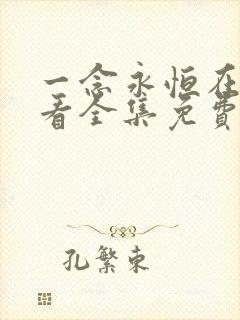 一念永恒在
看全集免费
孔繁东